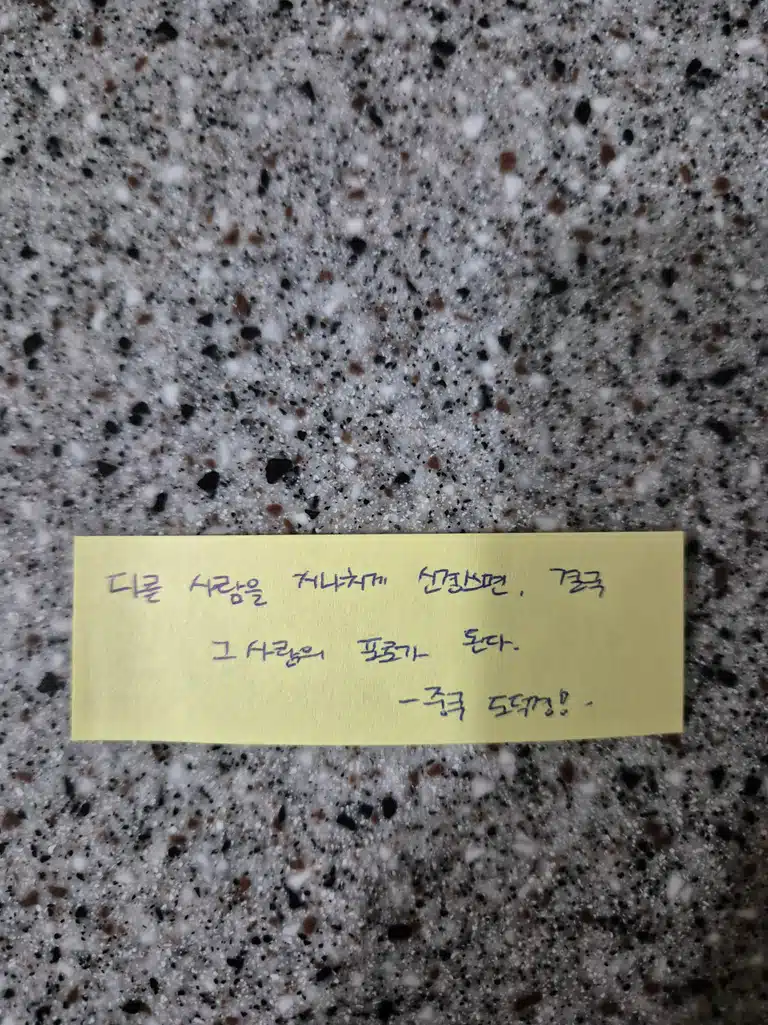 다른 사람을 지나치게 신경쓰면, 결국
그 사람의 포로가 된다.
-중국 도덕경! -